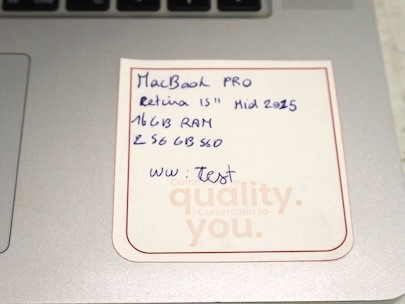 MacBook PRO
Retina 15" Mid 2015
16GB RAM
256 GB SSD
WW: Test
Committed to
quality.
Committed to
you.